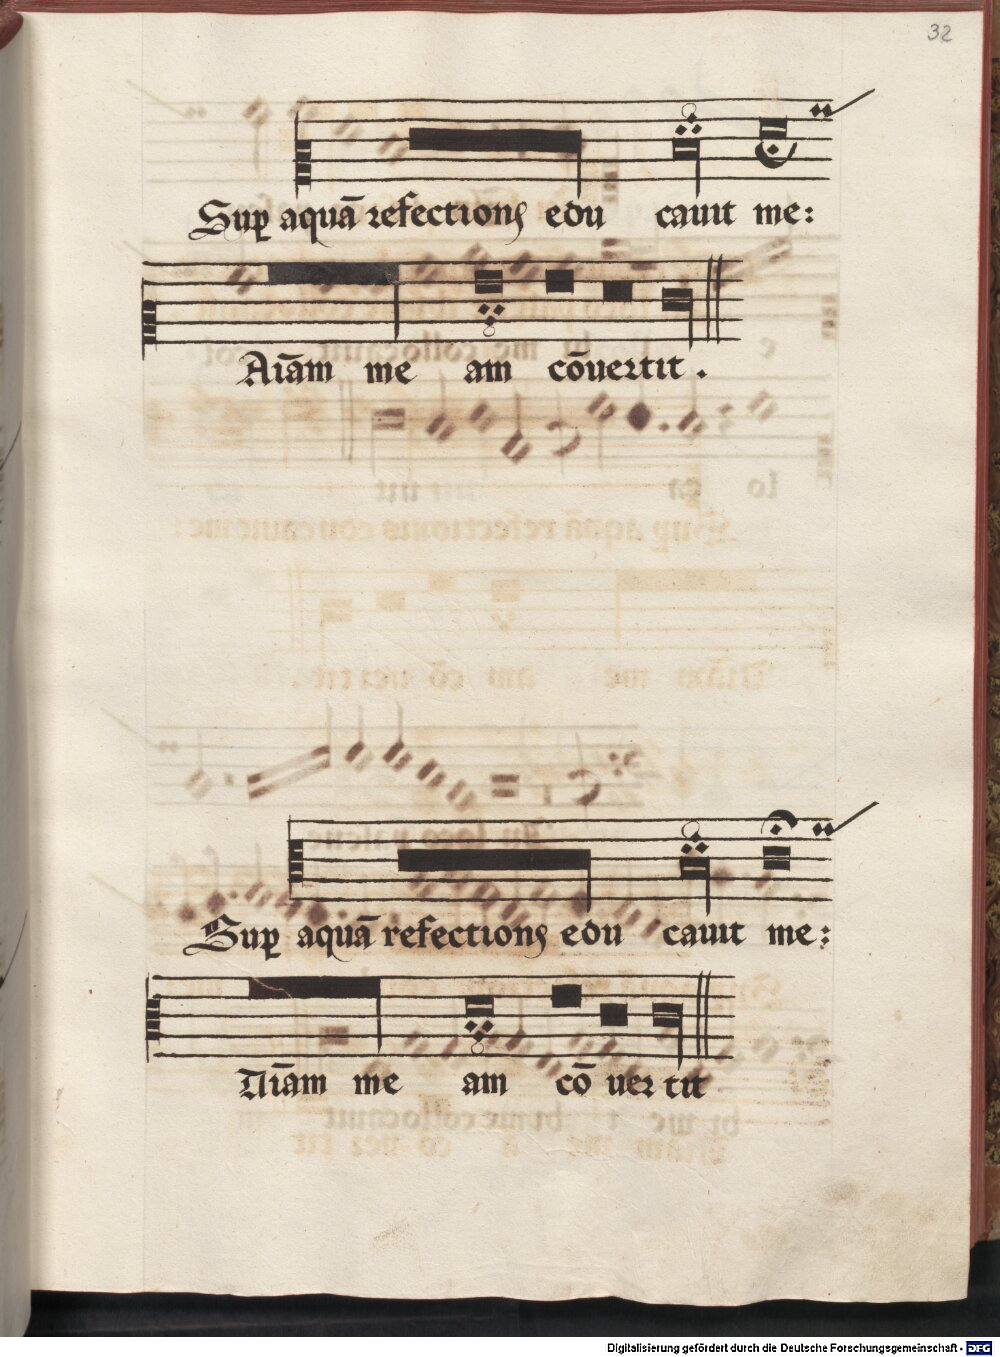 32
Sup aquã refectionꝭ edu cauit me:
Aĩam me am cõuertit.
Sup aquã refectionꝭ edu cauit me:
Aĩam me am cõ uertit
Digitalisierung gefördert durch die Deutsche Forschungsgemeinschaft - DFG